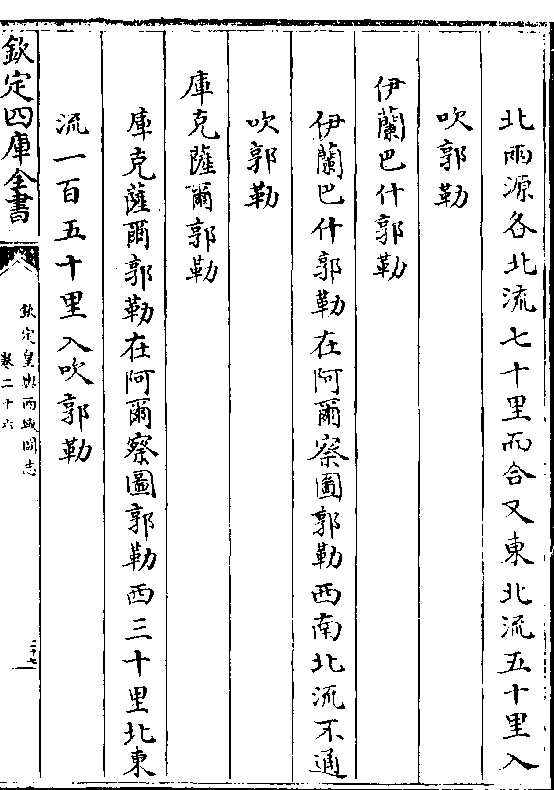 北兩源各北流七十里而合又東北流五十里入
吹郭勒
伊蘭巴什郭勒
伊蘭巴什郭勒在阿爾察圖郭勒西南北流不通
吹郭勒
庫克薩爾郭勒
庫克薩爾郭勒在阿爾察圖郭勒西三十里北東
流一百五十里入吹郭勒
欽定四庫全書
欽定皇輿西域圖志
卷二十六
二十七